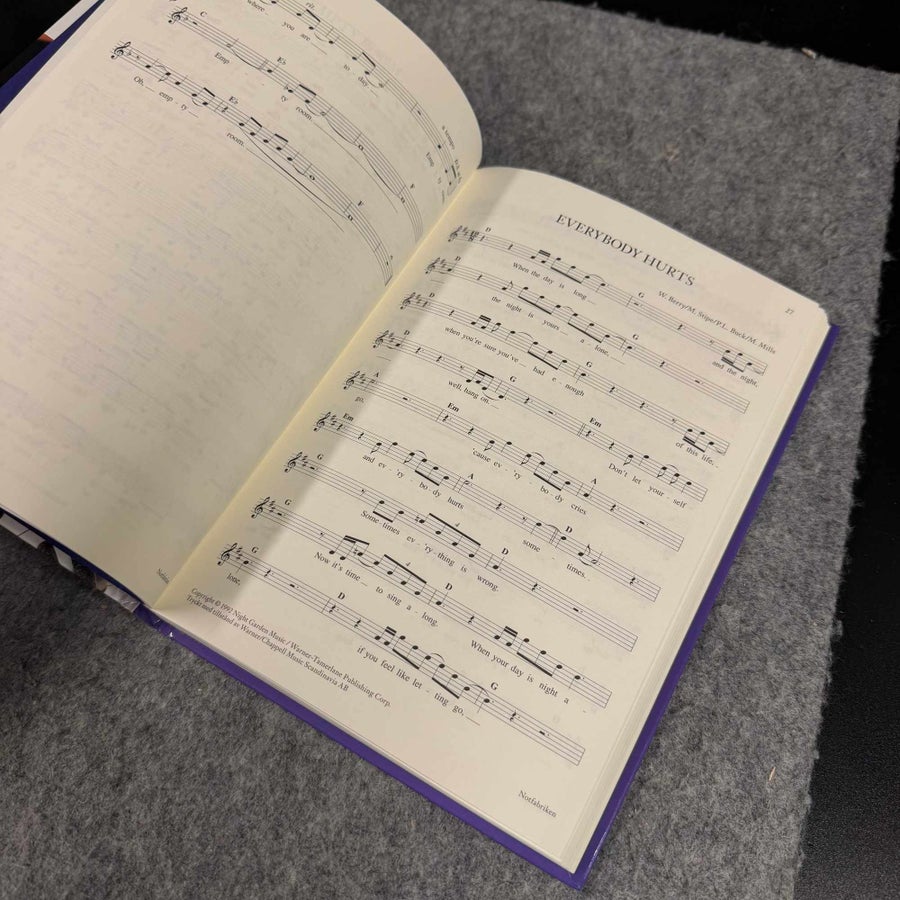 where you are to - day
rit.
a tempo
C
Eb
Emp - ty room.
Eb
F
Oh, emp - ty room.
EVERYBODY HURTS
27
W. Berry/M. Stipe/P.L. Buck/M. Mills
D G
When the day is long and the night,
D G
the night is yours a - lone,
D G
when you're sure you've had e - nough of this life,
D G Em
well, hang on. Don't let your - self
A Em A
go, 'cause ev - 'ry bo - dy cries
Em A D
and ev - 'ry bo - dy hurts some - times.
G D
Some - times ev - 'ry - thing is wrong.
G D
Now it's time to sing a - long. When your day is night a -
G D G
lone, if you feel like let - ting go,
Copyright © 1992 Night Garden Music / Warner-Tamerlane Publishing Corp.
Tryckt med tillstånd av Warner/Chappell Music Scandinavia AB
Notfabriken